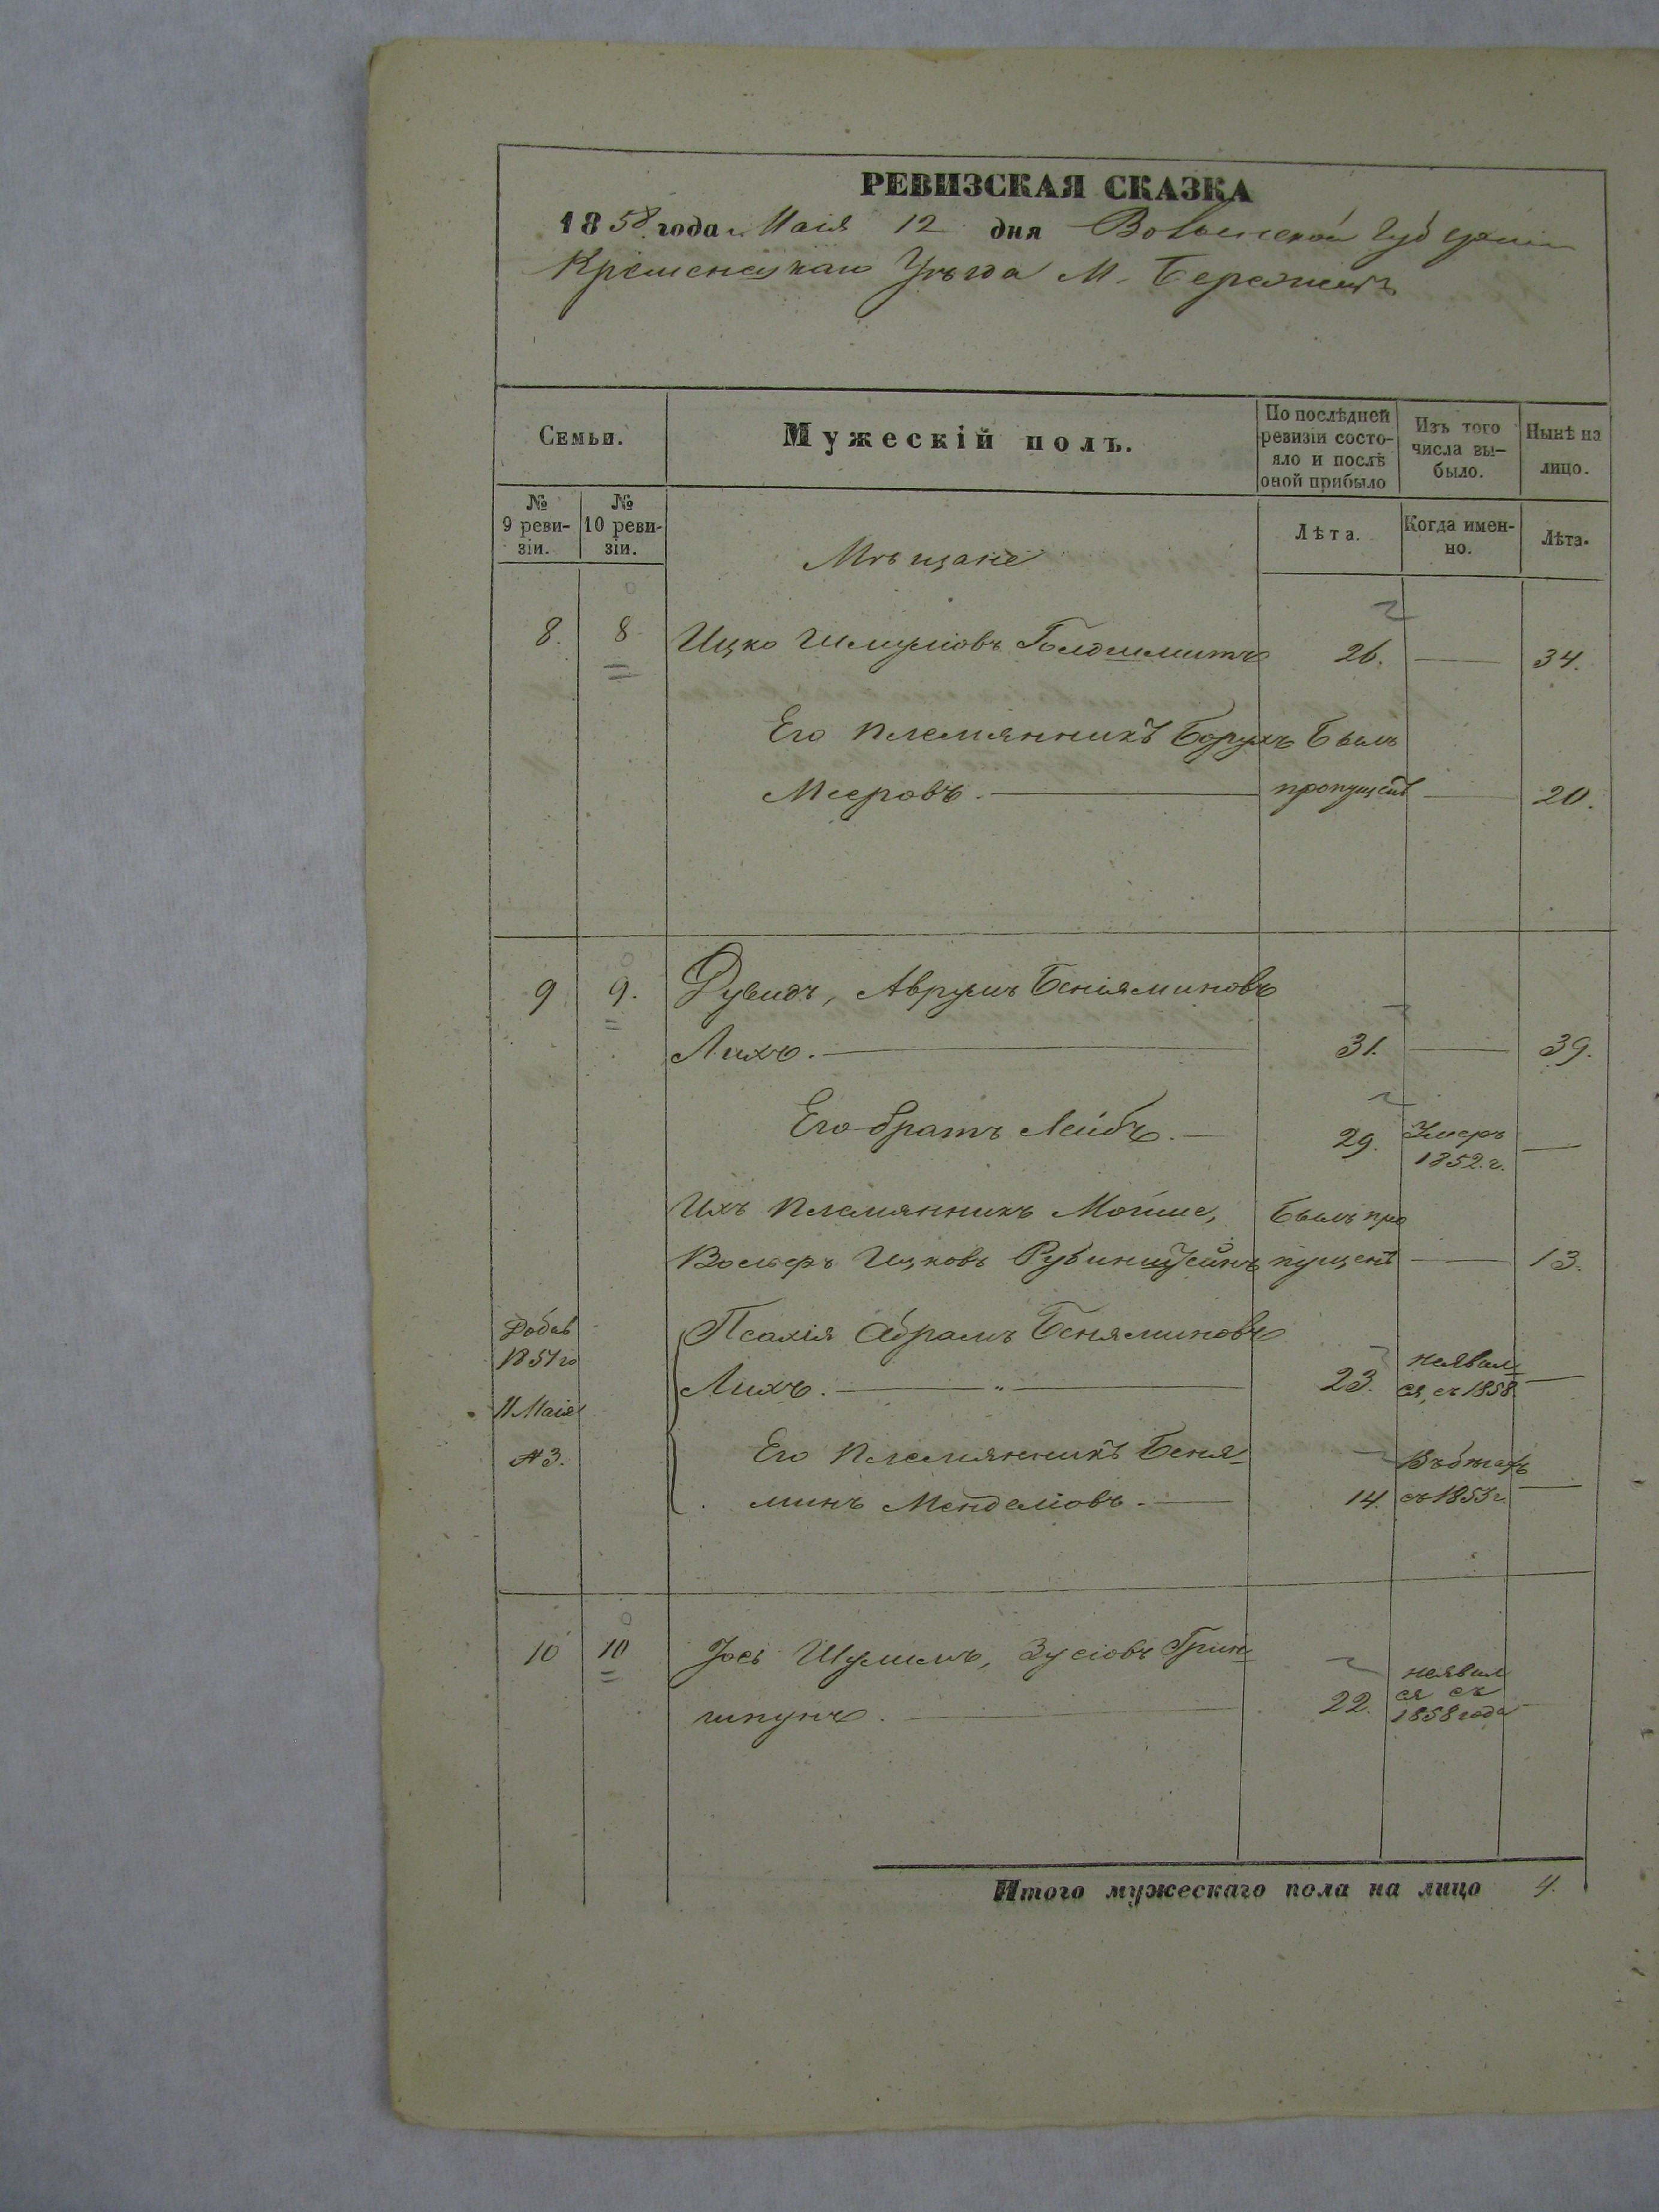 РЕВИЗСКАЯ СКАЗКА
1858 года Маія 12 дня Волынской Губерніи
Кременецкаго Уѣзда М. Бережецъ
Семьи.
Мужескій полъ.
По послѣдней ревизіи состо-
яло и послѣ оной прибыло
Изъ того числа вы-
было.
Нынѣ на лицо.
№ 9 реви-
зіи.
№ 10 реви-
зіи.
Лѣта.
Когда имен-
но.
Лѣта.
Мѣщане
8. 8 Ицко Шмуліовъ Голдшмитъ 26. 34.
Его племянникъ Борухъ Былъ
Мееровъ. пропущенъ 20.
9 9. Дувидъ, Аврумъ Беніяминовъ
Лихъ. 31. 39.
Его братъ Лейбъ. 29. Умеръ
1852. г.
Ихъ племянникъ Мойше, Былъ про
Вольфъ Ицковъ Рубинштейнъ пущенъ 13.
Добав 1851 го
11 Маія
№ 3.
Псахія Абрамъ Беняминовъ
Лихъ. 23. неявил
ся, съ 1858
Его племянникъ Беня-
минъ Менделіовъ. 14. Въ бѣгахъ
съ 1853 г.
10 10 Іось Шулимъ, Зусіовъ Грин-
шпунъ. 22. неявил
ся съ
1858 года
Итого мужескаго пола на лицо 4.